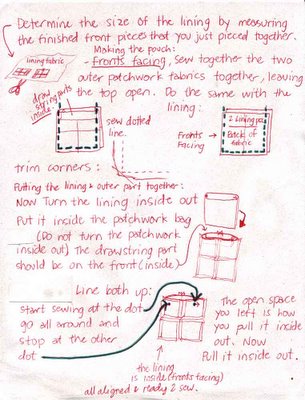 Determine the size of the lining by measuring
the finished front pieces that you just pieced together.
Making the pouch:
lining fabric
- fronts facing, sew together the two
outer patchwork fabrics together, leaving
the top open. Do the same with the
lining:
draw
string parts
inside:
sew dotted
line.
Fronts
facing
2 Lining
fabric
trim corners:
Putting the lining & outer part together:
Now Turn the lining inside out
Put it inside the patchwork bag
(Do not turn the patchwork
inside out) The drawstring part
should be on the front (inside)
Line both up:
Start sewing at the dot
go all around and
stop at the other
dot
The open space
you left is how
you pull it inside
out. Now
Pull it inside out.
the lining
is inside (fronts facing)
all aligned & ready 2 sew.